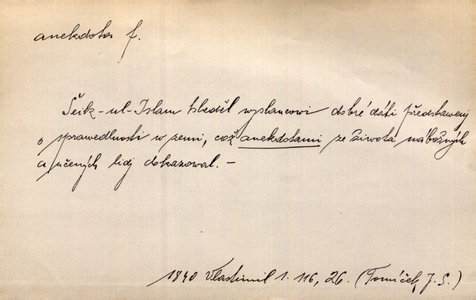 anekdota f.
Šeik-ul-Islam hleděl wyslancowi dobré dáti předstawenj
o sprawedlnosti w zemi, což anekdotami ze žiwota nábožných
a učených lidj dokazowal. –
1840 Vlastimil 1. 116, 26. (Tomíček, J. S.)